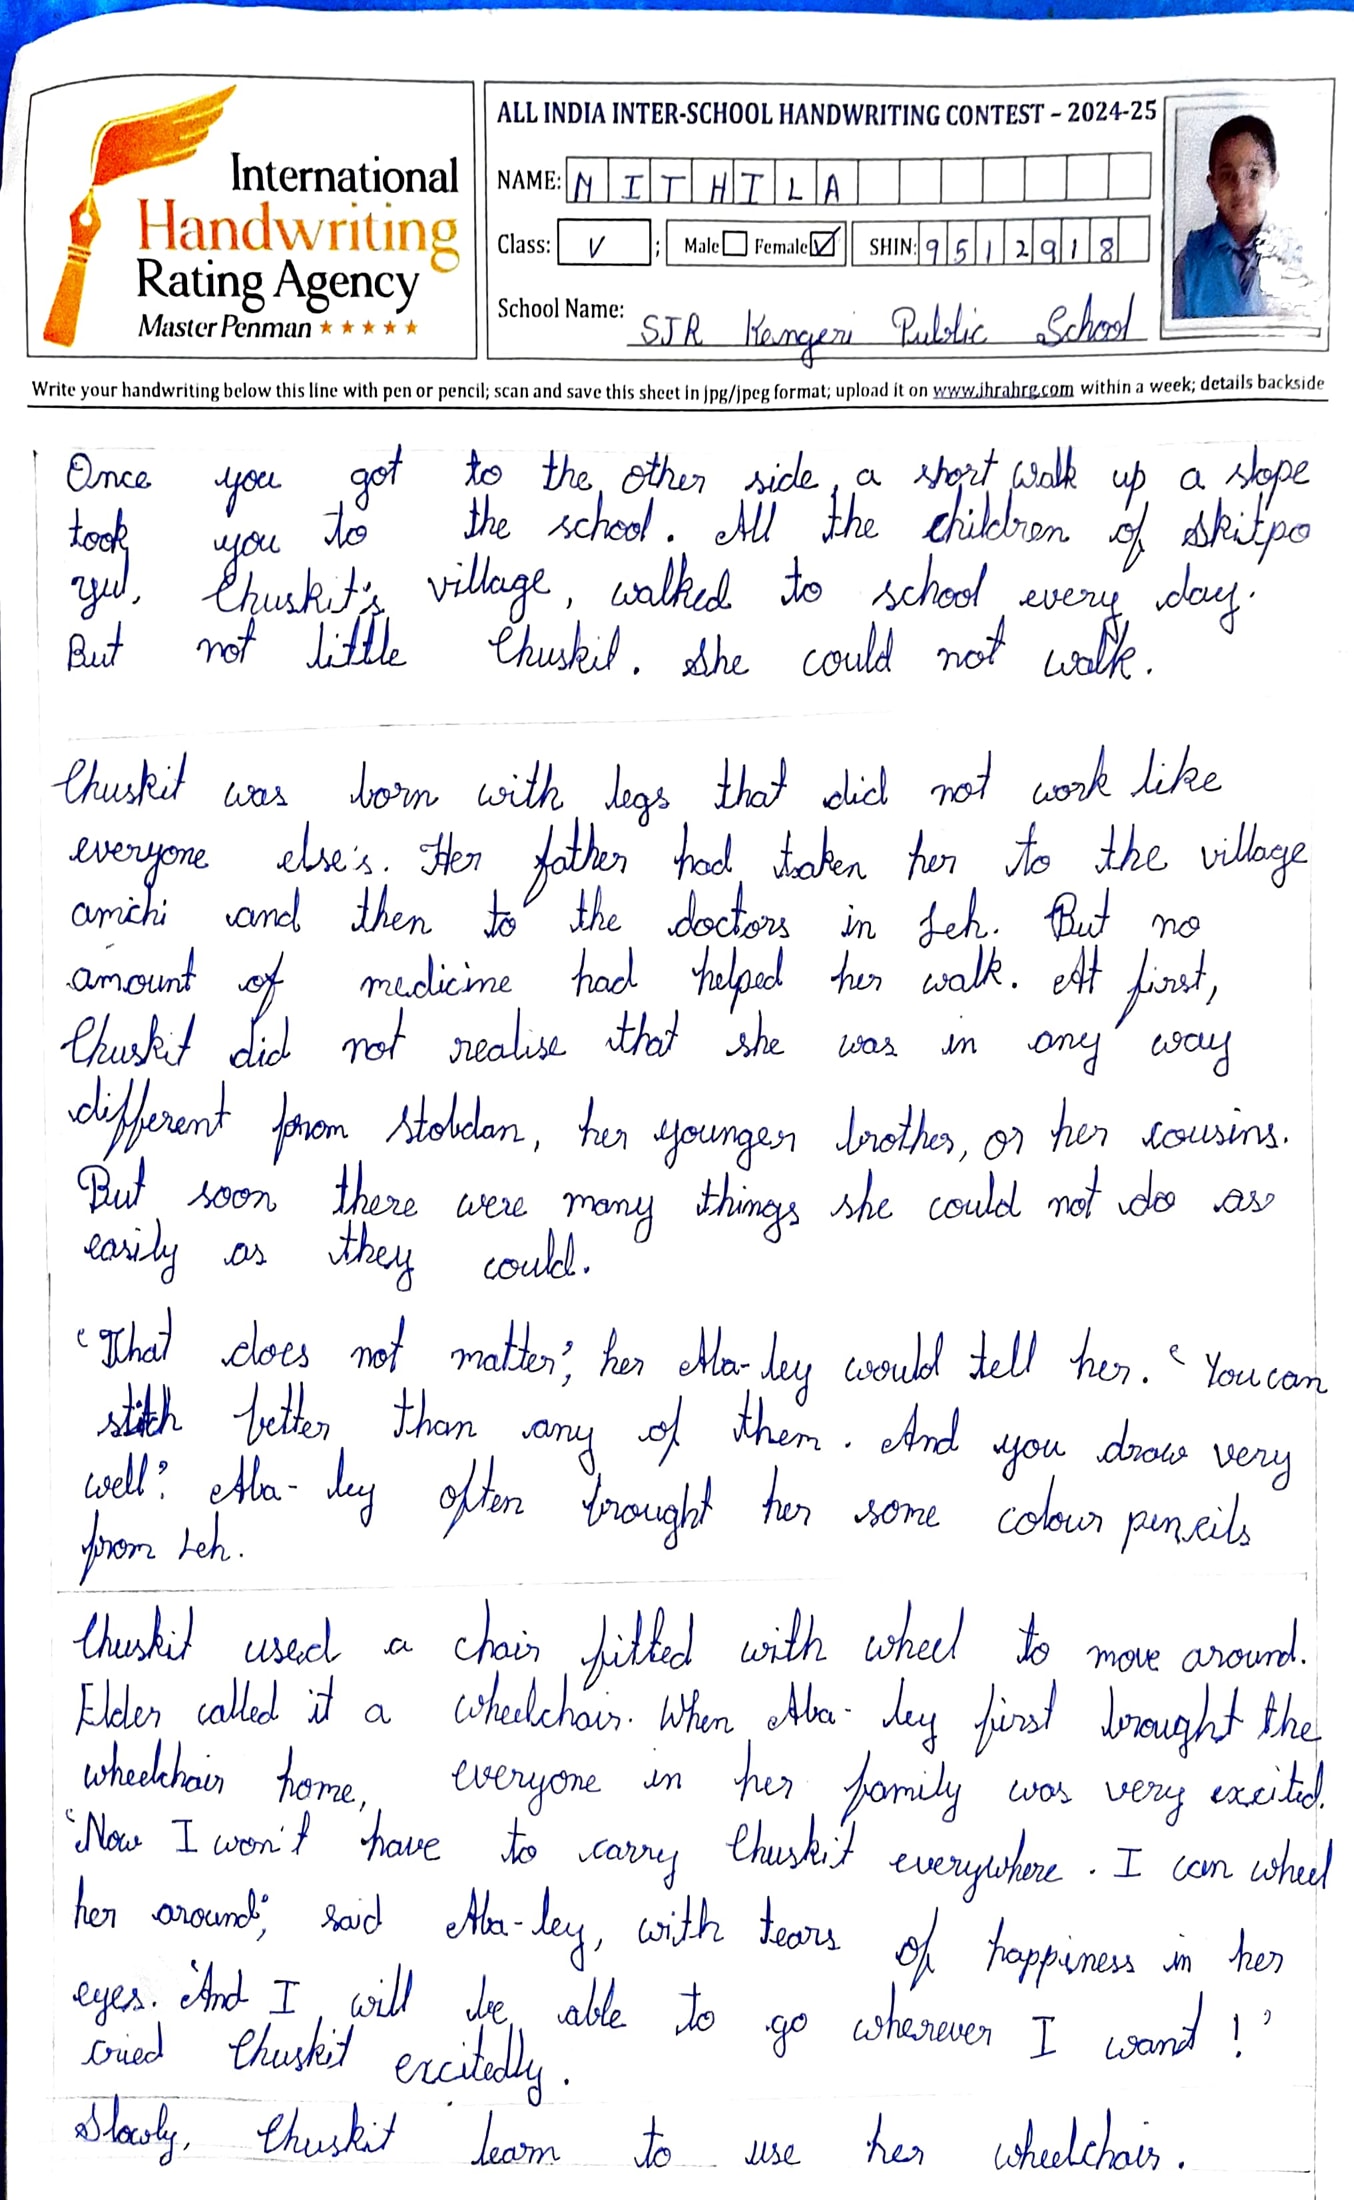 International
Handwriting
Rating Agency
Master Penman
ALL INDIA INTER-SCHOOL HANDWRITING CONTEST – 2024-25
NAME: NITHILA
Class: V ; Male Female SHIN: 9512918
School Name: SJR Kengeri Public School
Write your handwriting below this line with pen or pencil; scan and save this sheet in jpg/jpeg format; upload it on www.ihrahrg.com within a week; details backside
Once you got to the other side, a short walk up a slope
took you to the school. All the children of Skitpo
yul, Chuskit's village, walked to school every day.
But not little Chuskit. She could not walk.
Chuskit was born with legs that did not work like
everyone else's. Her father had taken her to the village
amchi and then to the doctors in Leh. But no
amount of medicine had helped her walk. At first,
Chuskit did not realise that she was in any way
different from Stobdan, her younger brother, or her cousins.
But soon there were many things she could not do as
easily as they could.
'That does not matter', her Aba-ley would tell her. 'You can
stitch better than any of them. And you draw very
well'. Aba-ley often brought her some colour pencils
from Leh.
Chuskit used a chair fitted with wheel to move around.
Elder called it a wheelchair. When Aba-ley first brought the
wheelchair home, everyone in her family was very excited.
'Now I won't have to carry Chuskit everywhere. I can wheel
her around', said Aba-ley, with tears of happiness in her
eyes. 'And I will be able to go wherever I want!'
cried Chuskit excitedly.
Slowly, Chuskit learn to use her wheelchair.